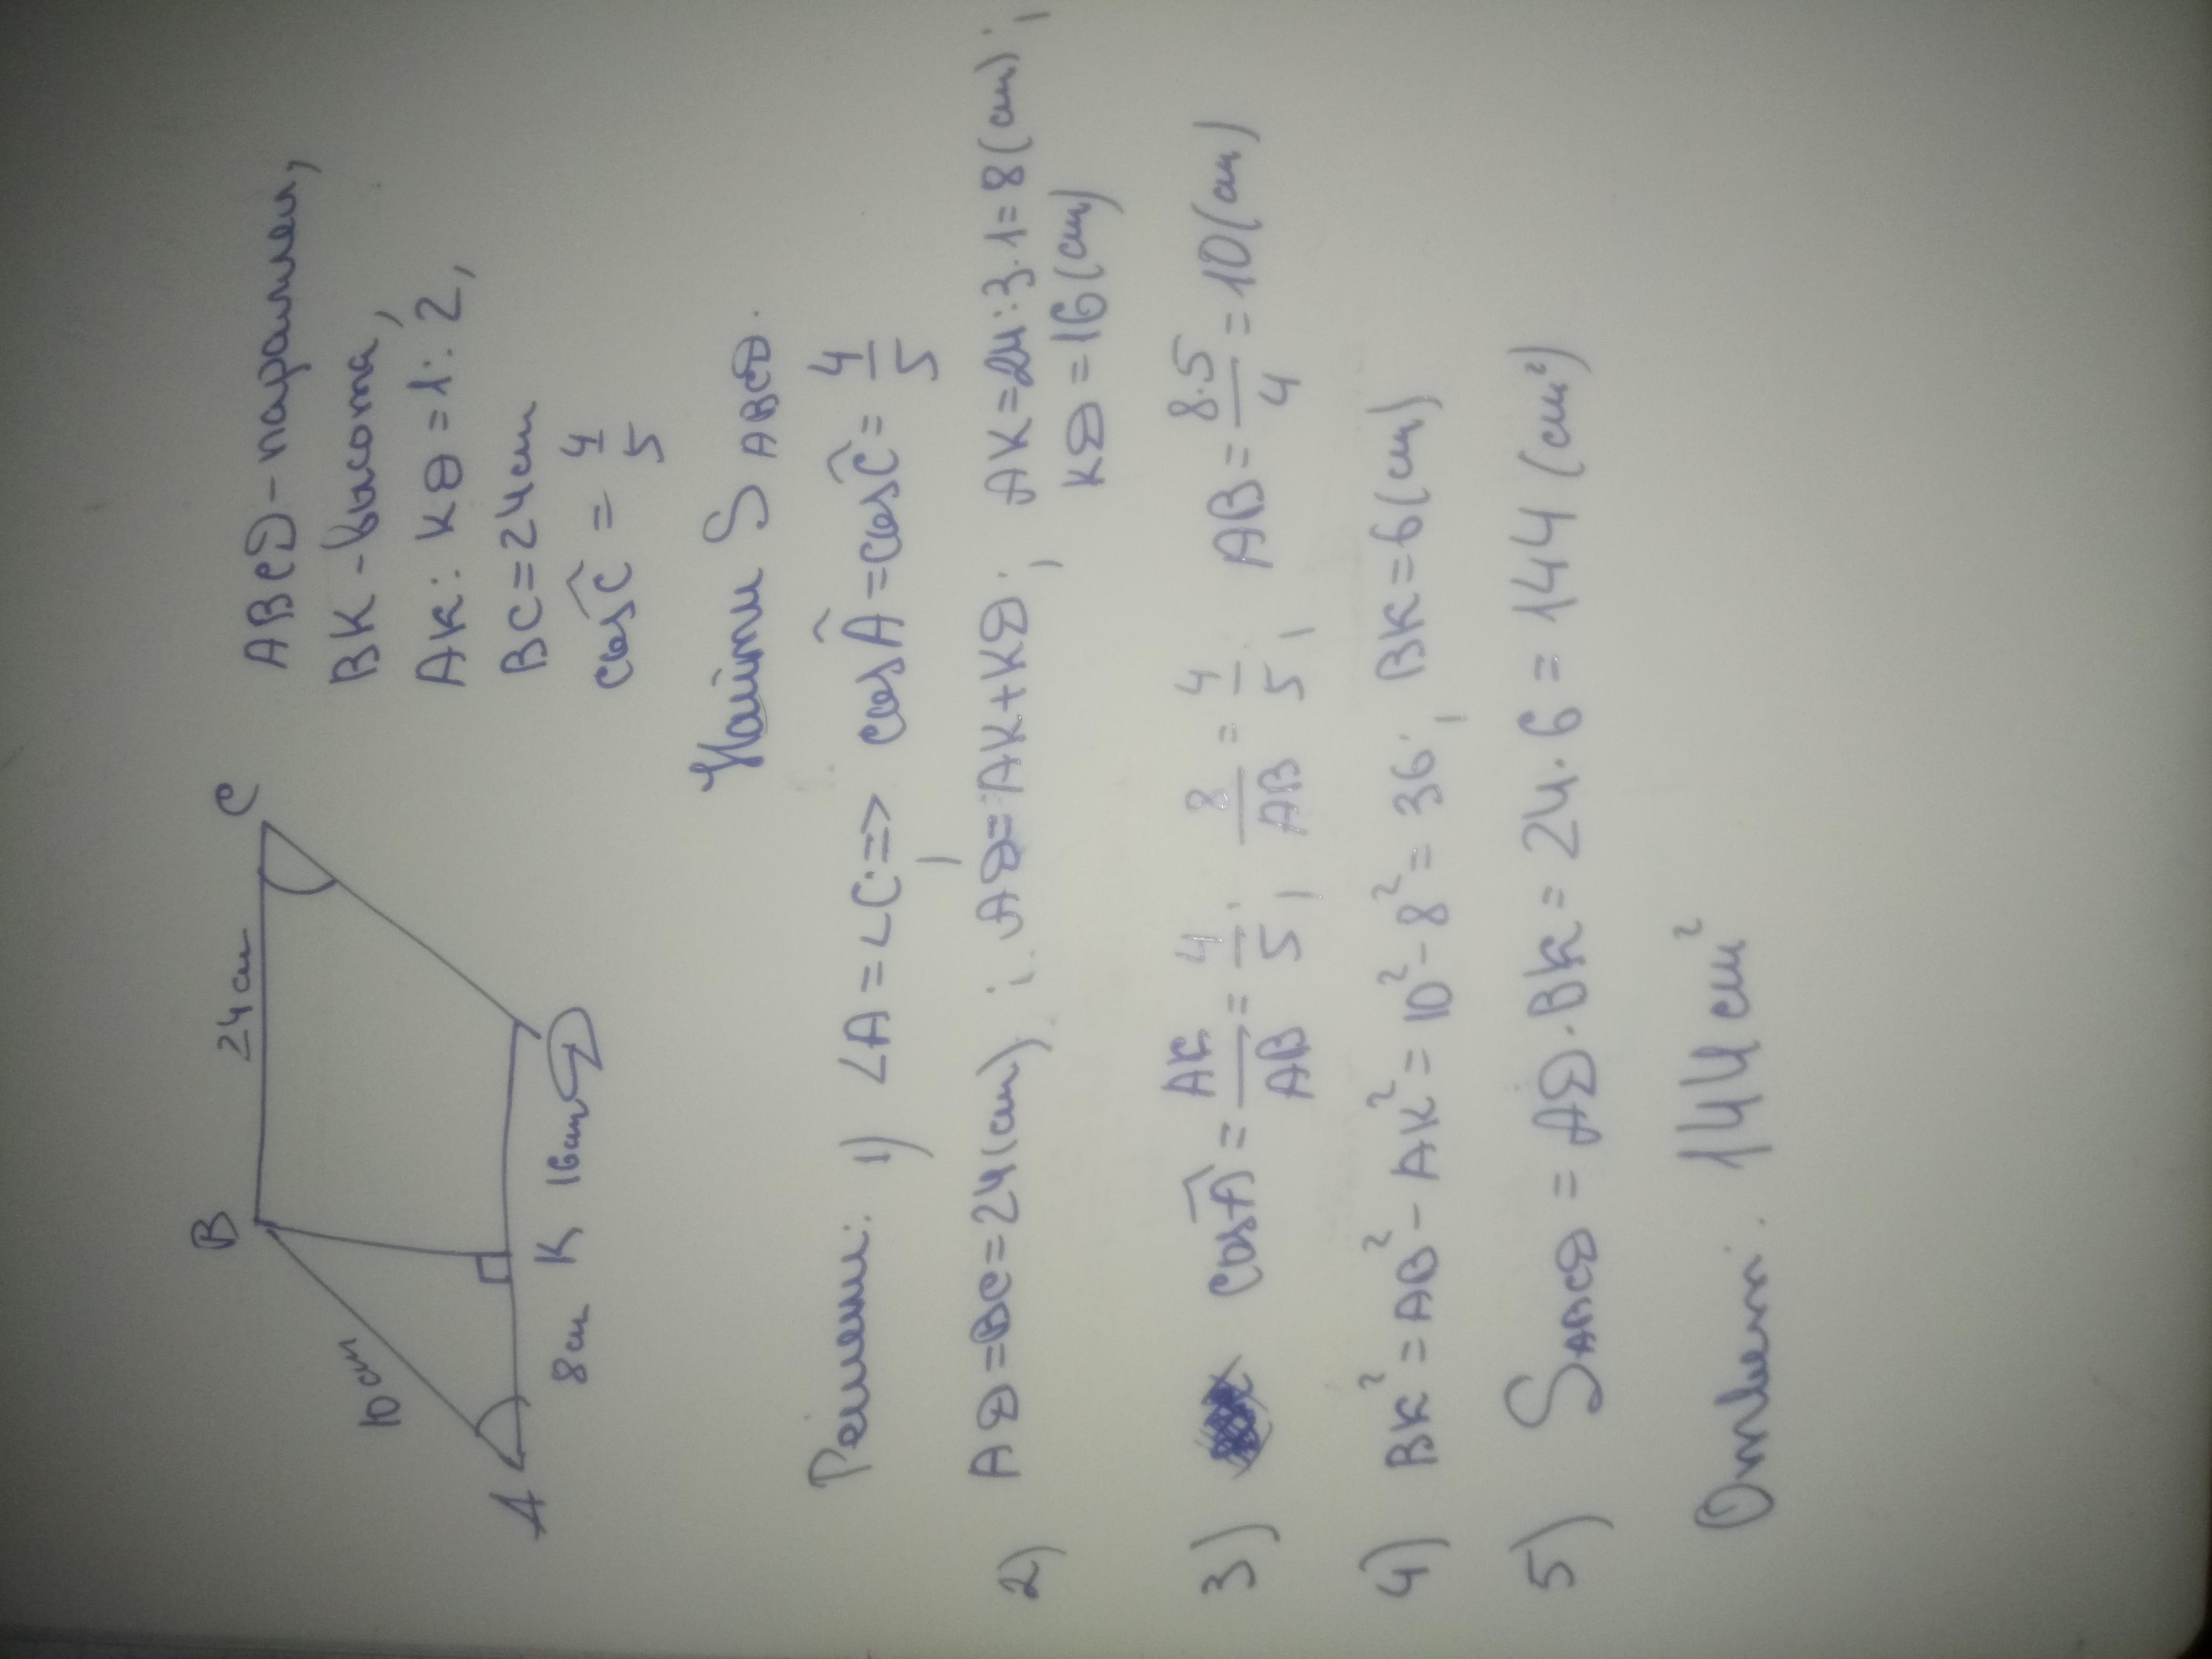 B
24 см
C
10 см
A
8 см
K
16 см
D
ABCD - параллел,
BK - высота,
AK : KD = 1 : 2,
BC = 24 см
cos C = 4/5
Найти S ABCD.
Решение: 1) ∠A = ∠C; => cos A = cos C = 4/5
2) AD = BC = 24 (см); AD = AK + KD; AK = 24 : 3 · 1 = 8 (см);
KD = 16 (см)
3) cos A = AK/AB = 4/5; 8/AB = 4/5; AB = 8·5/4 = 10 (см)
4) BK² = AB² - AK² = 10² - 8² = 36; BK = 6 (см)
5) S ABCD = AD · BK = 24 · 6 = 144 (см²)
Ответ: 144 см²